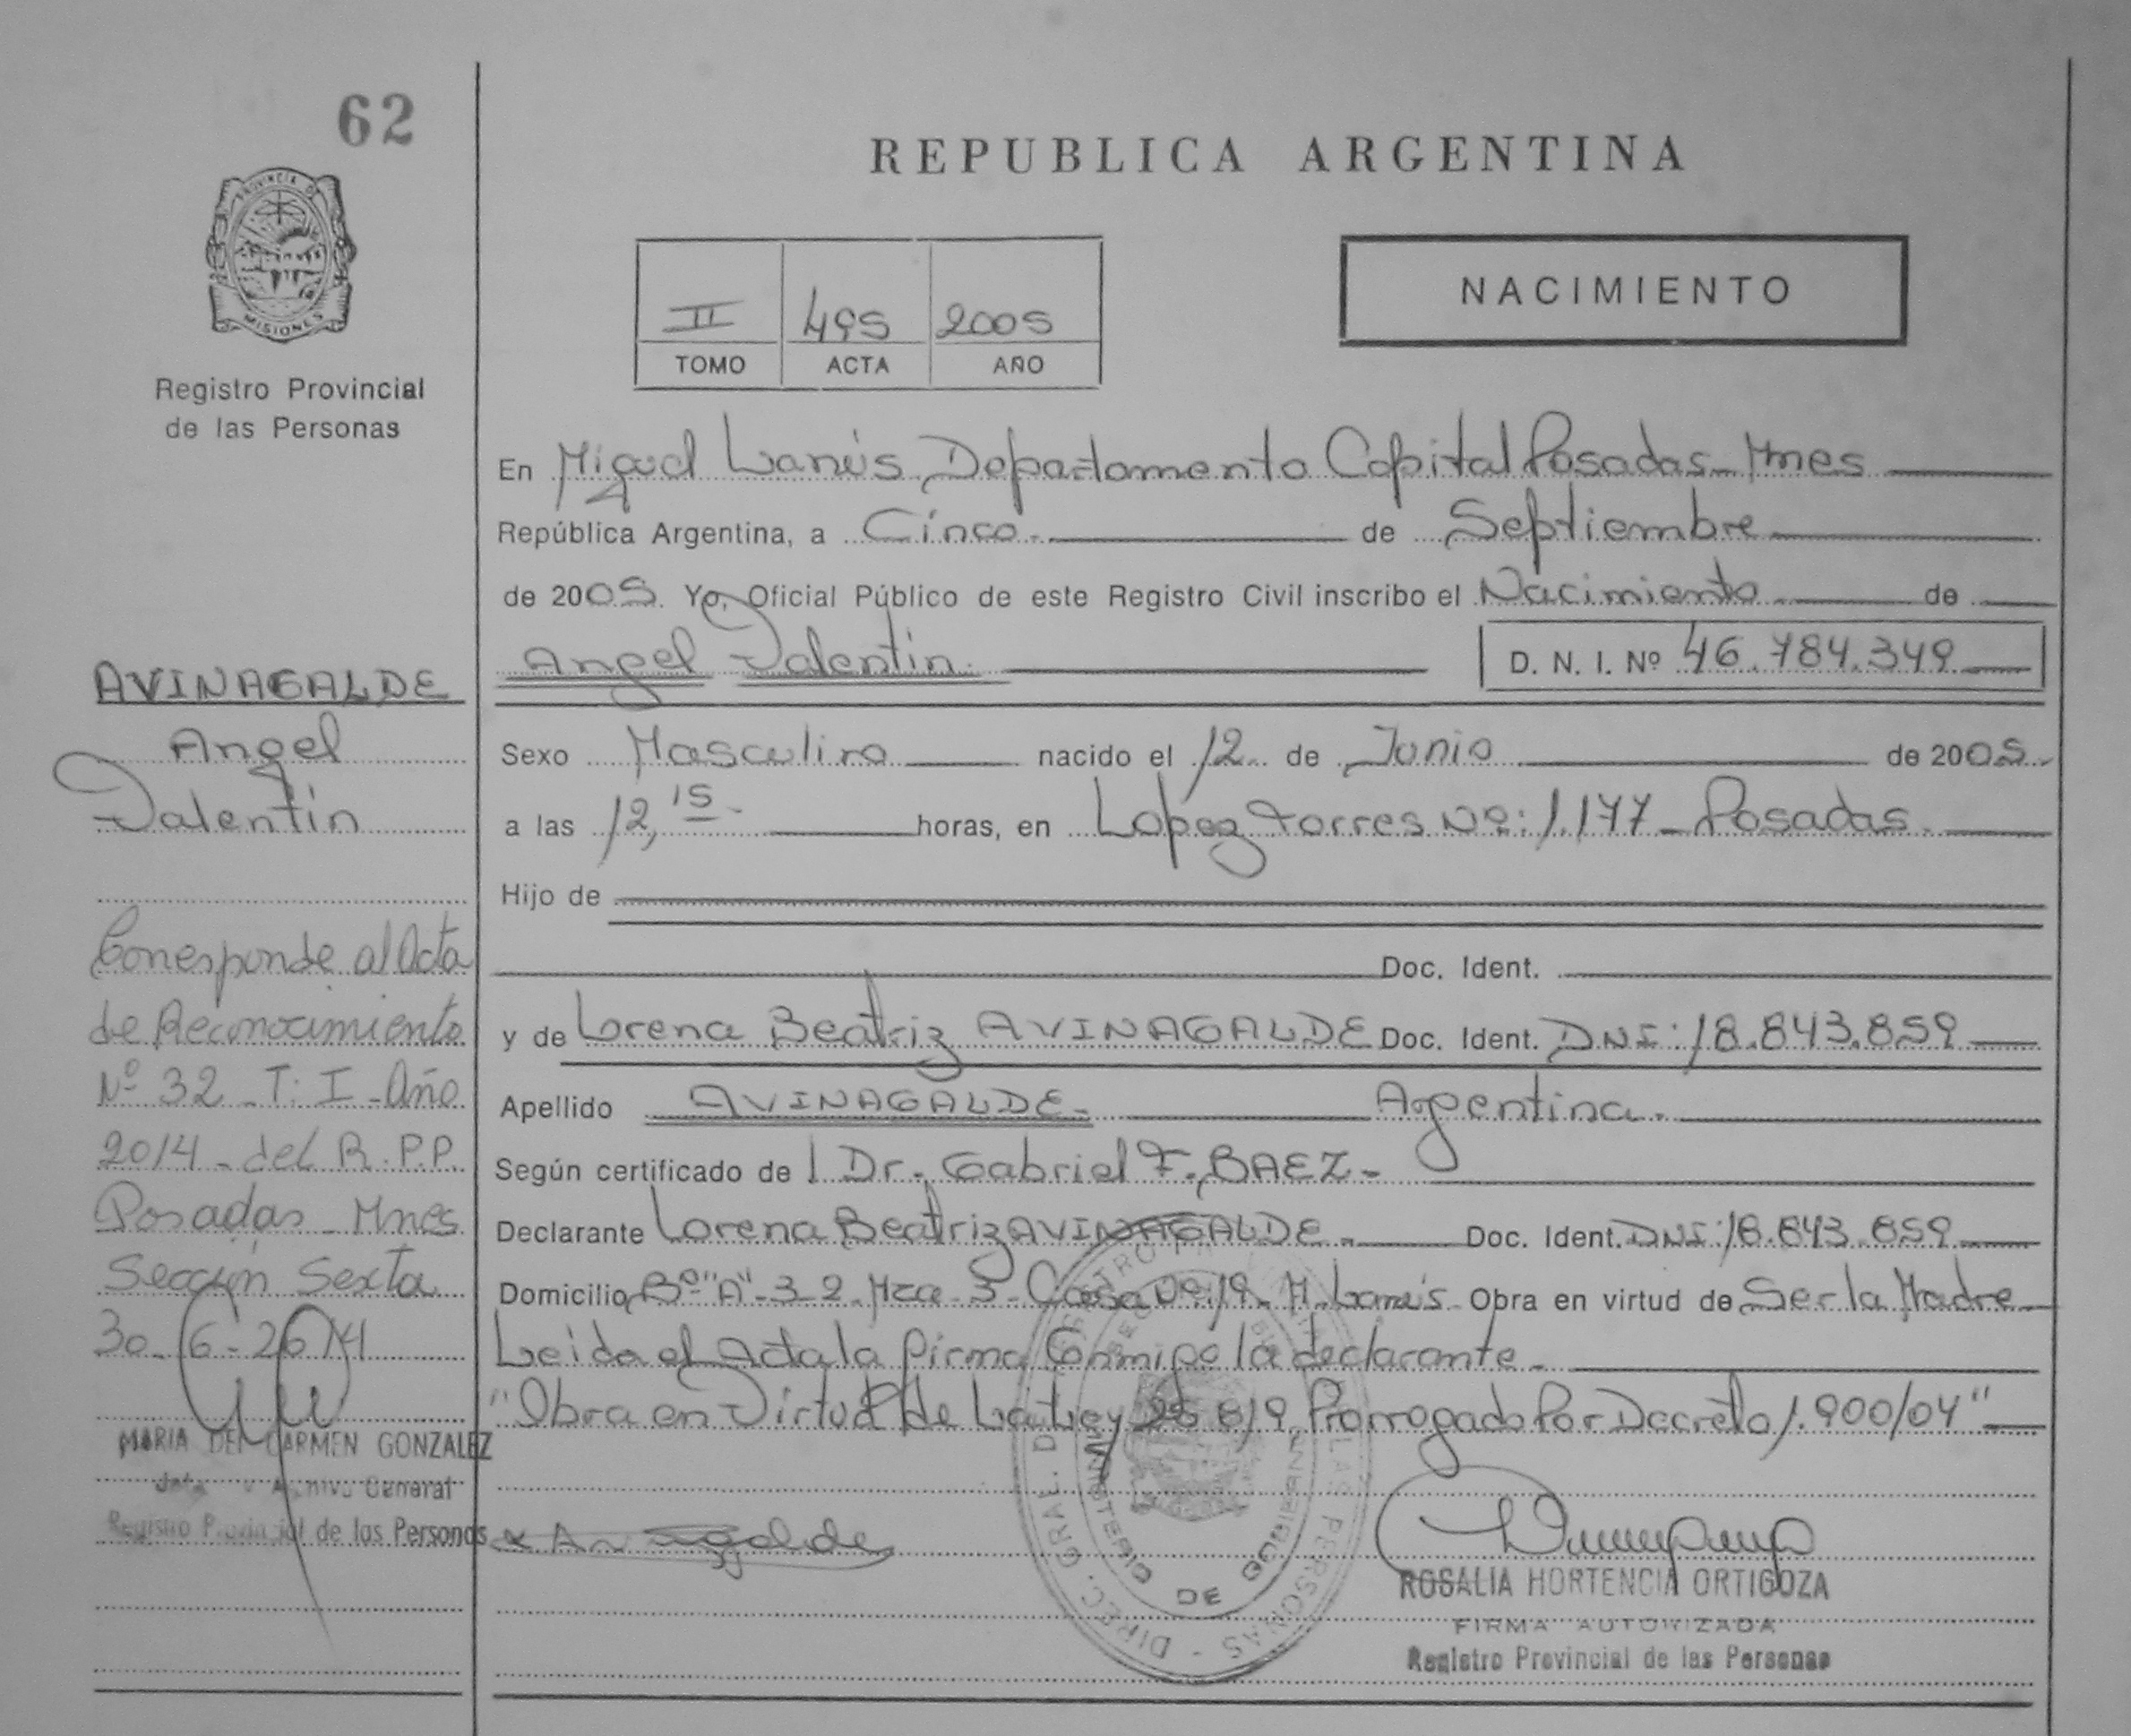 62
PROVINCIA DE
MISIONES
Registro Provincial
de las Personas
REPUBLICA ARGENTINA
II 495 2005
TOMO ACTA AÑO
NACIMIENTO
En Miguel Lanús Departamento Capital Posadas_Mnes
República Argentina, a Cinco.- de Septiembre
de 2005. Yo, Oficial Público de este Registro Civil inscribo el Nacimiento de
Angel Valentín.
D. N. I. Nº 46.784.349
Sexo Masculino nacido el 12 de Junio de 2005
a las 12,15 horas, en Lopez Torres Nº: 1.177_ Posadas.
Hijo de
Doc. Ident.
y de Lorena Beatriz AVINAGALDE Doc. Ident. DNI: 18.843.859
Apellido AVINAGALDE- Argentina.
Según certificado de l Dr. Gabriel F. BAEZ-
Declarante Lorena Beatriz AVINAGALDE. Doc. Ident. DNI: 18.843.859
Domicilio Bº "A"-3-2 Mza 3 Casa Nº:19_ M. Lanús. Obra en virtud de Ser la Madre
Leida el Acta la firma Conmigo la declarante-
"Obra en Virtud de La Ley 25 819, Prorrogado Por Decreto 1.900/04"
AVINAGALDE
Angel
Valentín
Corresponde al Acta
de Reconocimiento
Nº 32_T: I_Año
2014_del R.P.P.
Posadas_Mnes
Sección Sexta
30-6-2014
MARIA DEL CARMEN GONZALEZ
Archivo General
Registro Provincial de las Personas
DIREC. GRAL. DE LAS PERSONAS
MINISTERIO DE GOBIERNO
ROSALIA HORTENCIA ORTIGOZA
FIRMA AUTORIZADA
Registro Provincial de las Personas